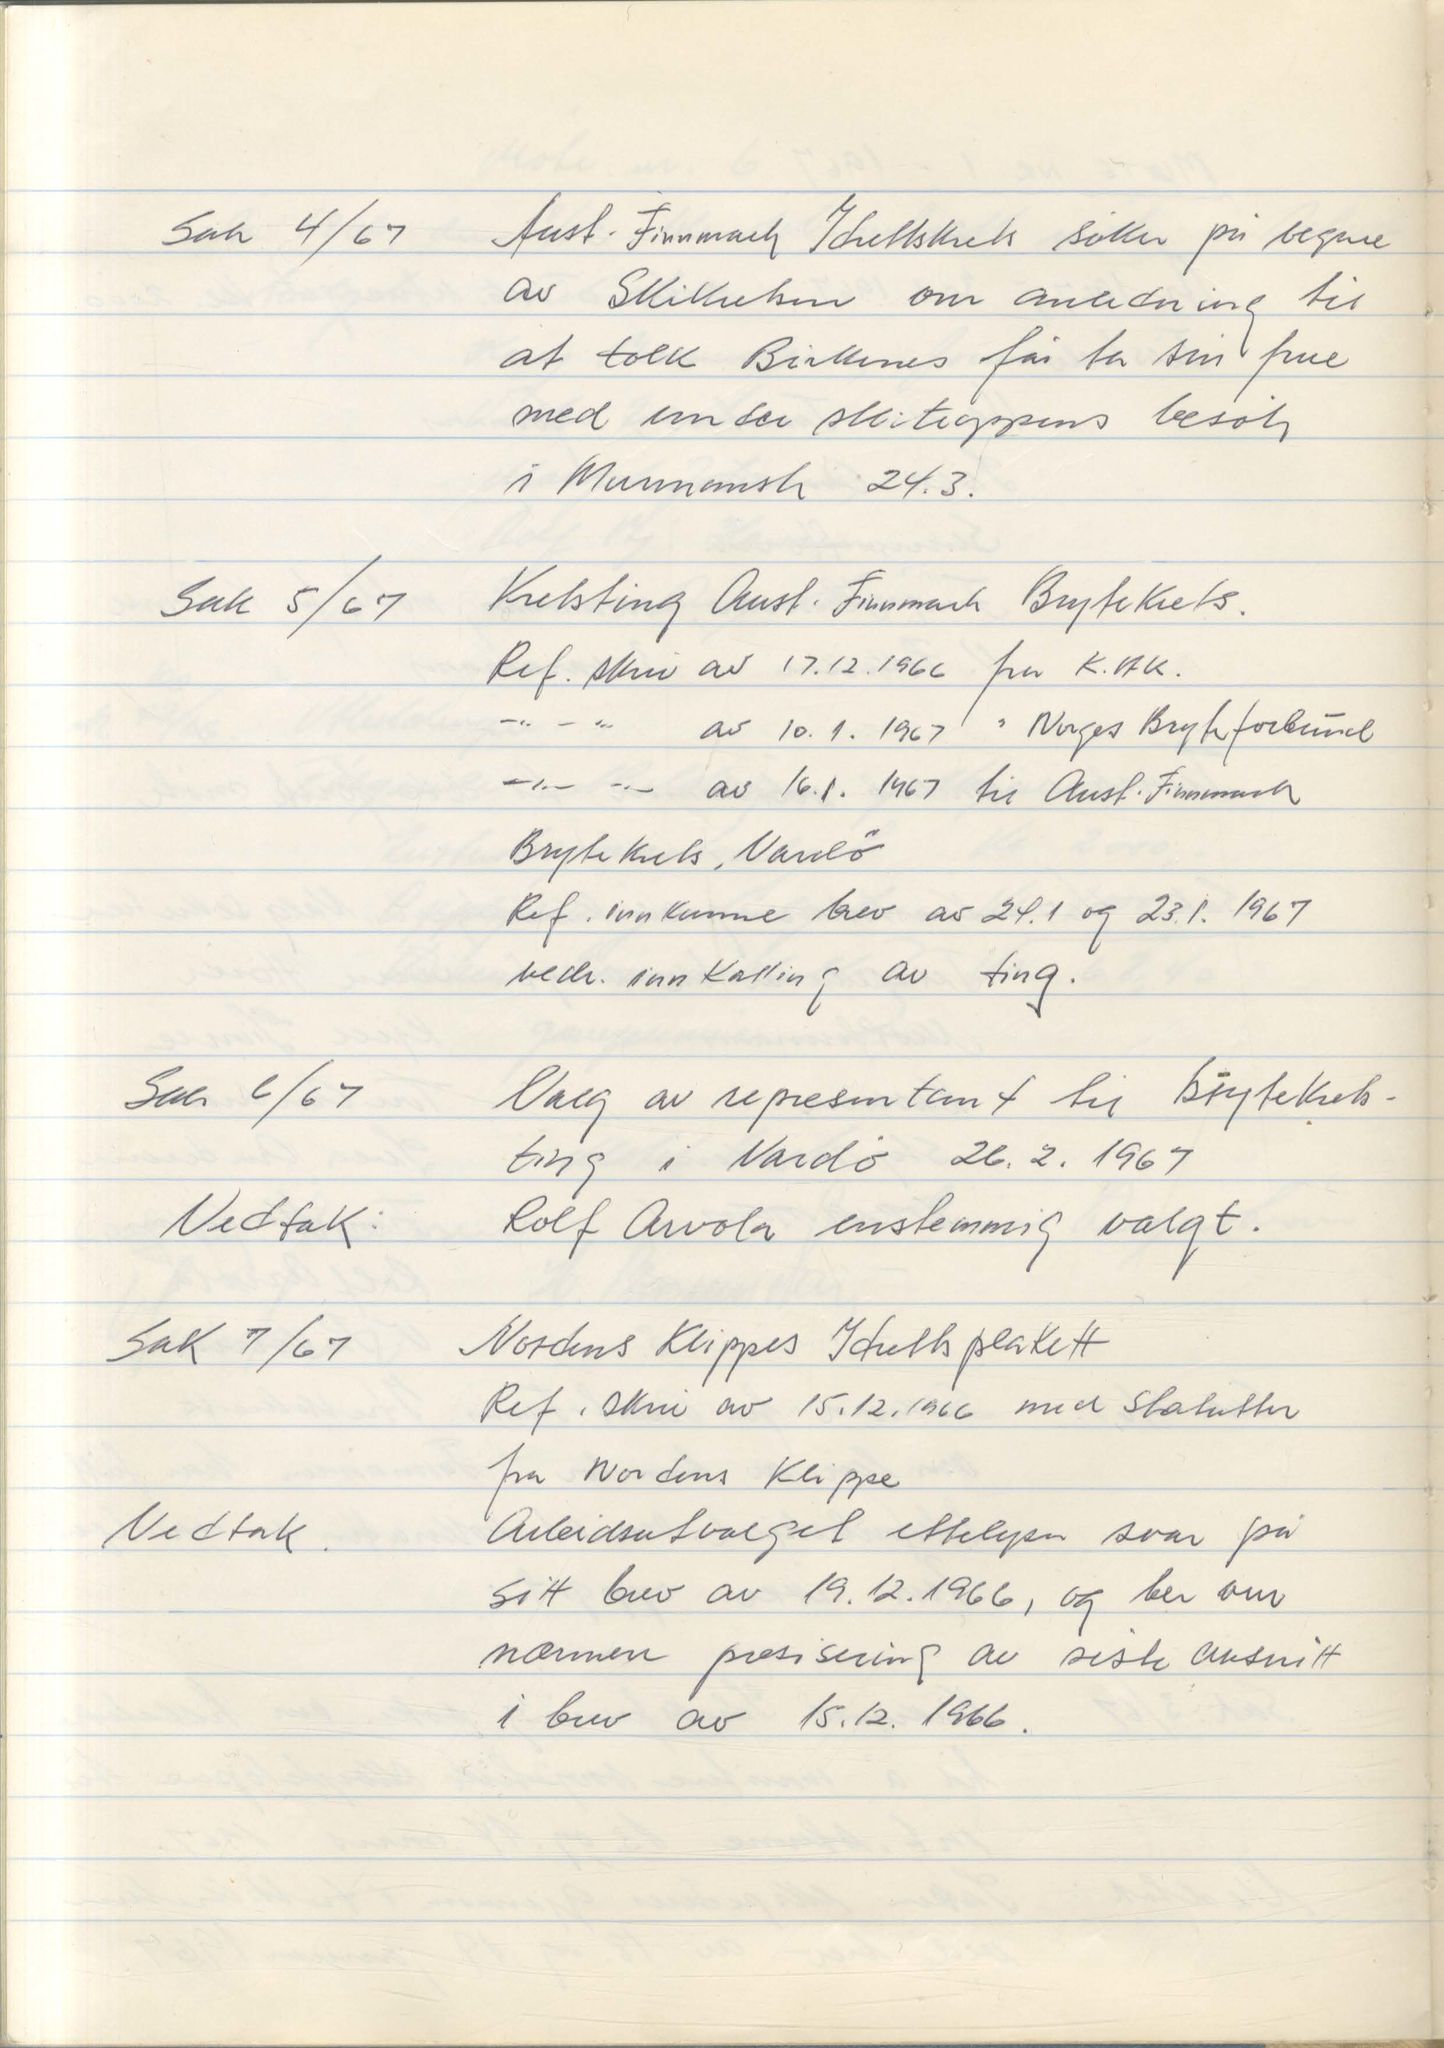 Sak 4/67 Aust-Finnmark Idrettskrets søker på vegne
av Skikretsen om anledning til
at tolk Birkenes får ta sin frue
med under skitroppens besøk
i Murmansk 24.3.
Sak 5/67 Kretsting Aust-Finnmark Brytekrets.
Ref. skriv av 17.12.1966 fra K.AK.
-"- -"- av 10.1.1967 " Norges Bryteforbund
-"- -"- av 16.1.1967 til Aust-Finnmark
Brytekrets, Vardö
Ref. innkomne brev av 24.1 og 23.1.1967
vedr. innkalling av ting.
Sak 6/67 Valg av representant til brytekrets-
ting i Vardö 26.2.1967
Vedtak: Rolf Arvola enstemmig valgt.
Sak 7/67 Nordens Klippes Idrettsplakett
Ref. skriv av 15.12.1966 med statutter
fra Nordens Klippe
Vedtak. Arbeidsutvalget etterlyser svar på
sitt brev av 19.12.1966, og ber om
nærmere presisering av siste avsnitt
i brev av 15.12.1966.